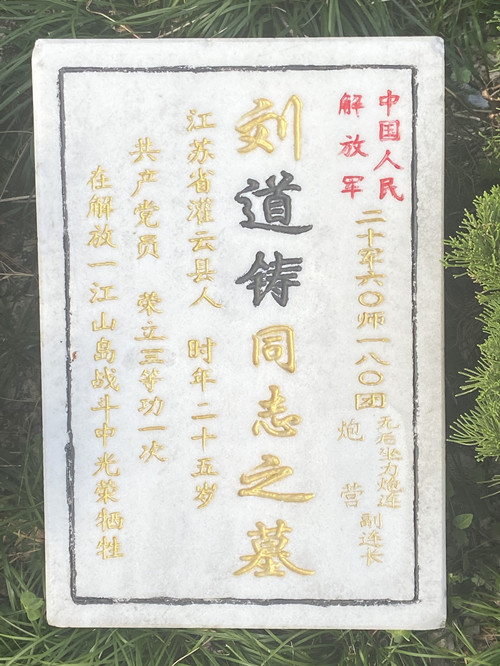 中国人民
解放军
二十军六〇师一八〇团
炮营
无后坐力炮连
副连长
刘道铸同志之墓
江苏省灌云县人 时年二十五岁
共产党员 荣立三等功一次
在解放一江山岛战斗中光荣牺牲